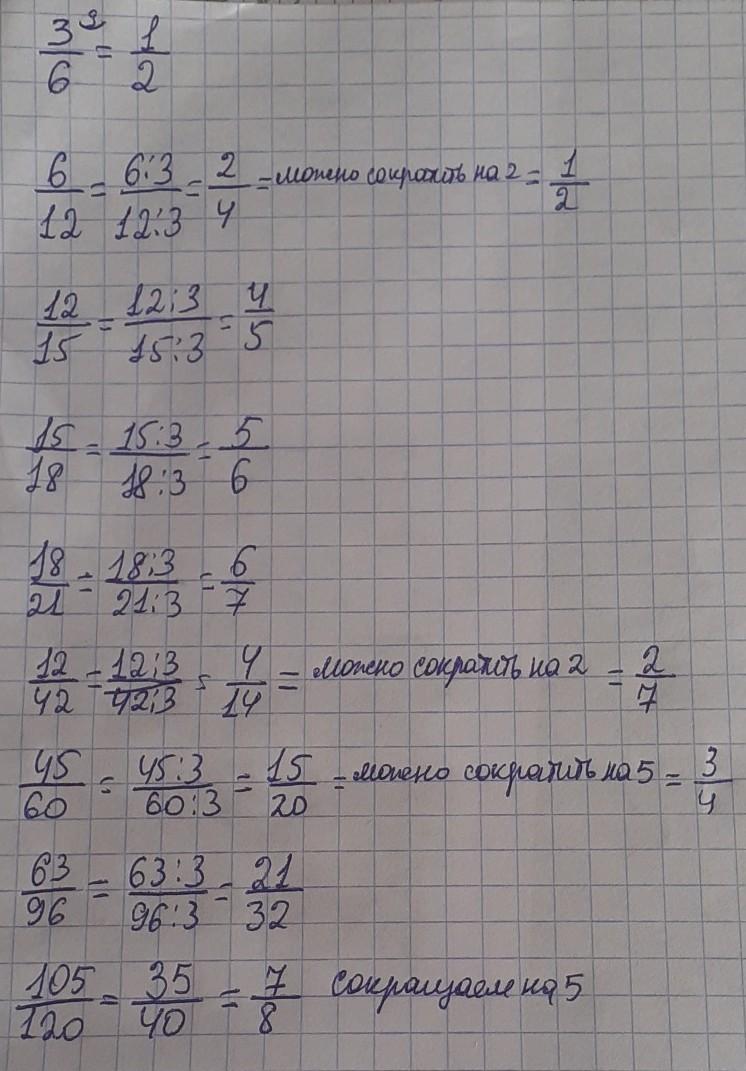 3/6 = 1/2
6/12 = 6:3/12:3 = 2/4 = можно сократить на 2 = 1/2
12/15 = 12:3/15:3 = 4/5
15/18 = 15:3/18:3 = 5/6
18/21 = 18:3/21:3 = 6/7
12/42 = 12:3/42:3 = 4/14 = можно сократить на 2 = 2/7
45/60 = 45:3/60:3 = 15/20 = можно сократить на 5 = 3/4
63/96 = 63:3/96:3 = 21/32
105/120 = 35/40 = 7/8 сокращаем на 5